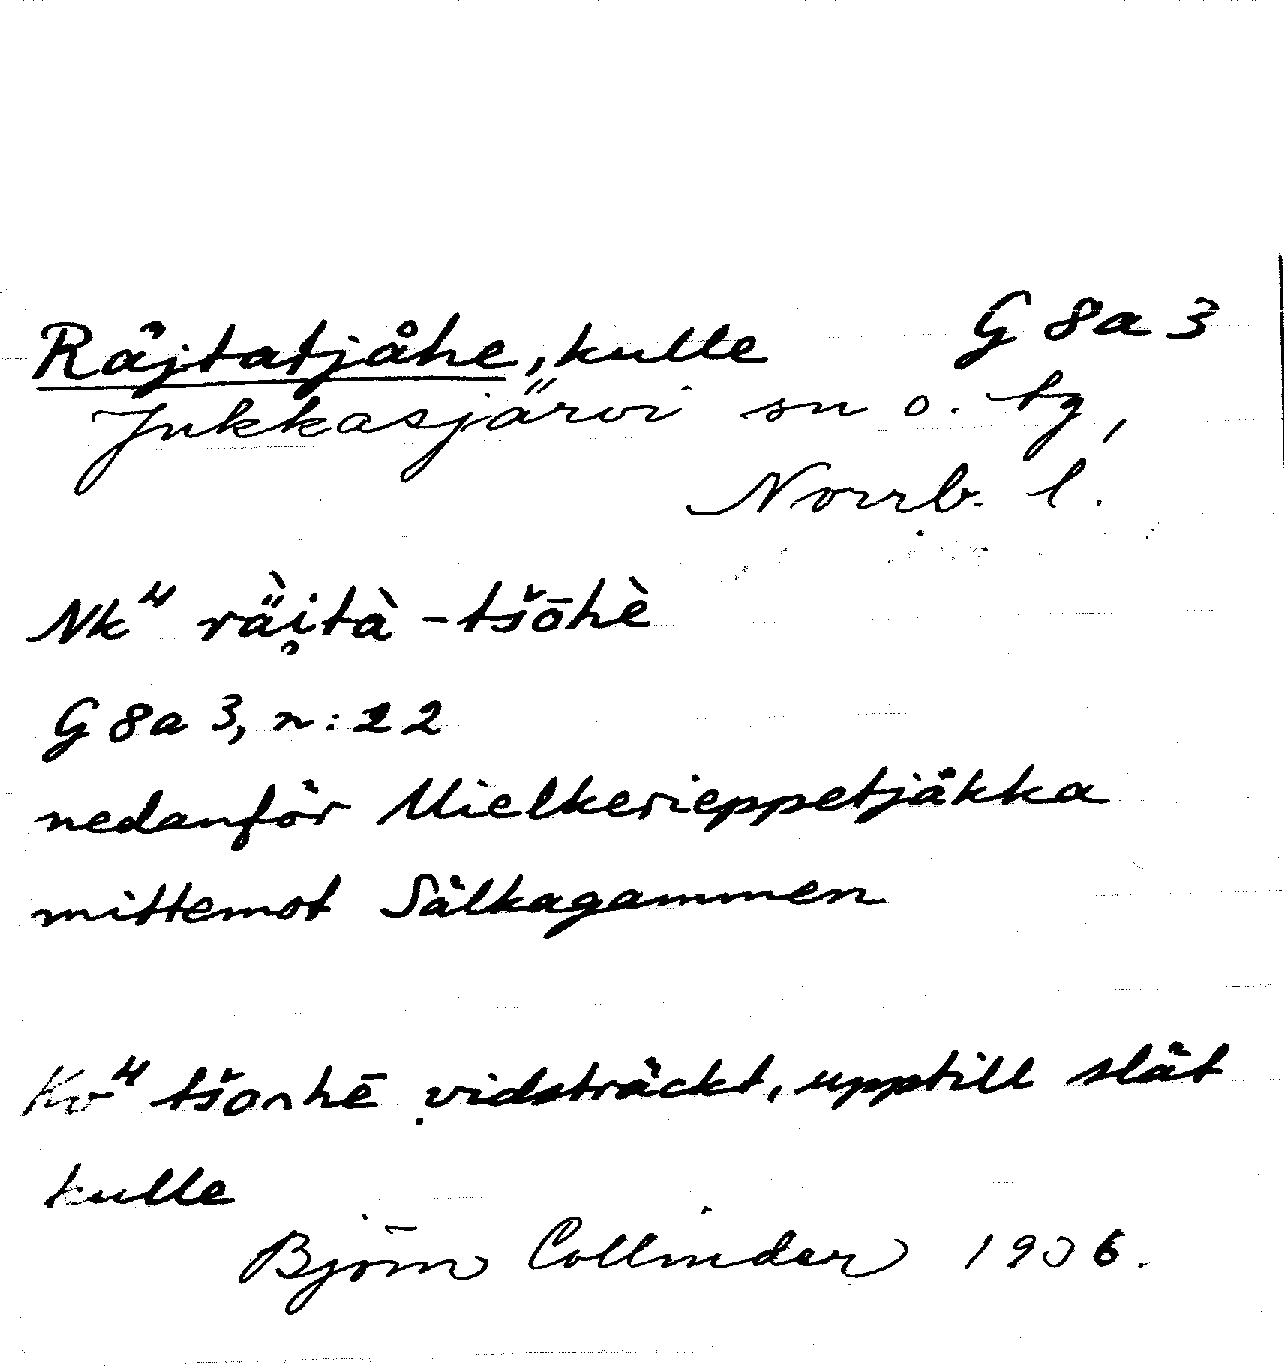 Räjtatjåhe, kulle G 8a 3
Jukkasjärvi sn o. tg,
Norrb. l.
Nk⁴ räi̯tà - tšōhè
G 8a 3, n: 22
nedanför Mielkerieppetjåkka
mittemot Sälkagammen
Kv⁴ tšoₙhē vidsträckt, upptill slät
kulle
Björn Collinder 1936.